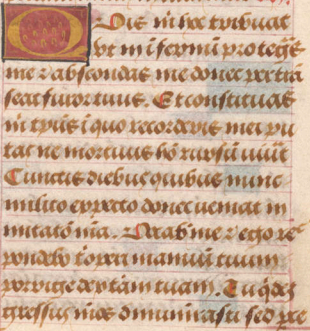 Quis m̄ hoc tribuat
ut in īferno protegas
me ⁊ abscondas me donec pertrā
seat furor tuus. Et constituas
m̄ tp̄us ī quo recorderis mei pu
tas ne mortuus hō rursū uiuit
Cunctis diebus quibus nunc
milito expecto donec ueniat in
mutatō m̄a. Uocab me ⁊ ego re
pondebo t̄ operi manuū tuum
porrige dextam tuam. Tu qdez
gressus m̄os dinumerasti sed pce